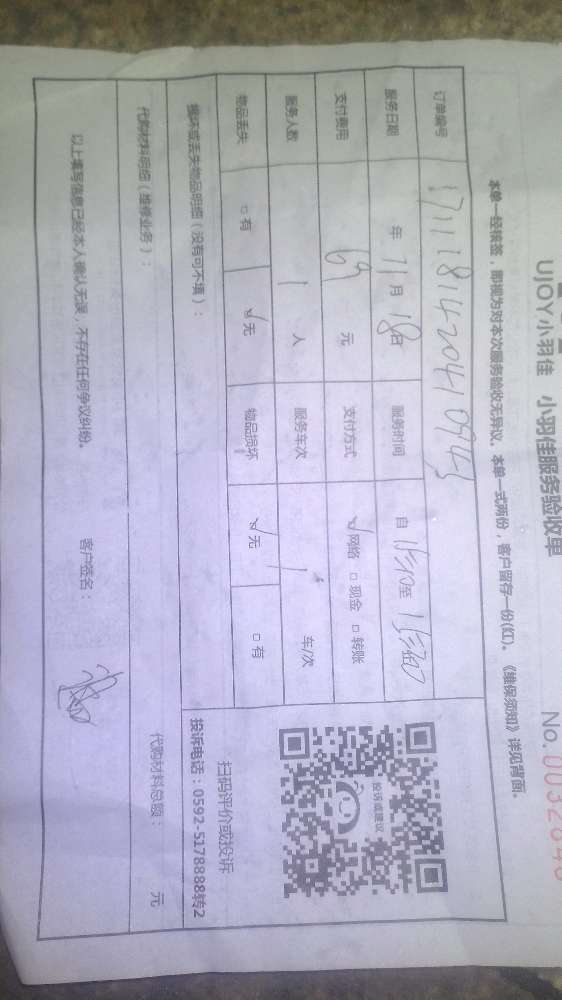 UJOY小羽佳 小羽佳服务验收单
No.
本单一经核签，即视为对本次服务验收无异议。本单一式两份，客户留存一份(红)。《维保须知》详见背面。
订单编号
服务日期 年 11 月 18 日 服务时间 自 至
支付费用 69 元 支付方式 ☑网络 □现金 □转账
服务人数 1 人 服务车次 1 车/次
物品丢失 □有 ☑无 物品损坏 ☑无 □有
损坏或丢失物品明细（没有可不填）：
投诉或建议
扫码评价或投诉
投诉电话：0592-5178888转2
代购材料明细（维修业务）： 代购材料总额： 元
以上填写信息已经本人确认无误，不存在任何争议纠纷。 客户签名：